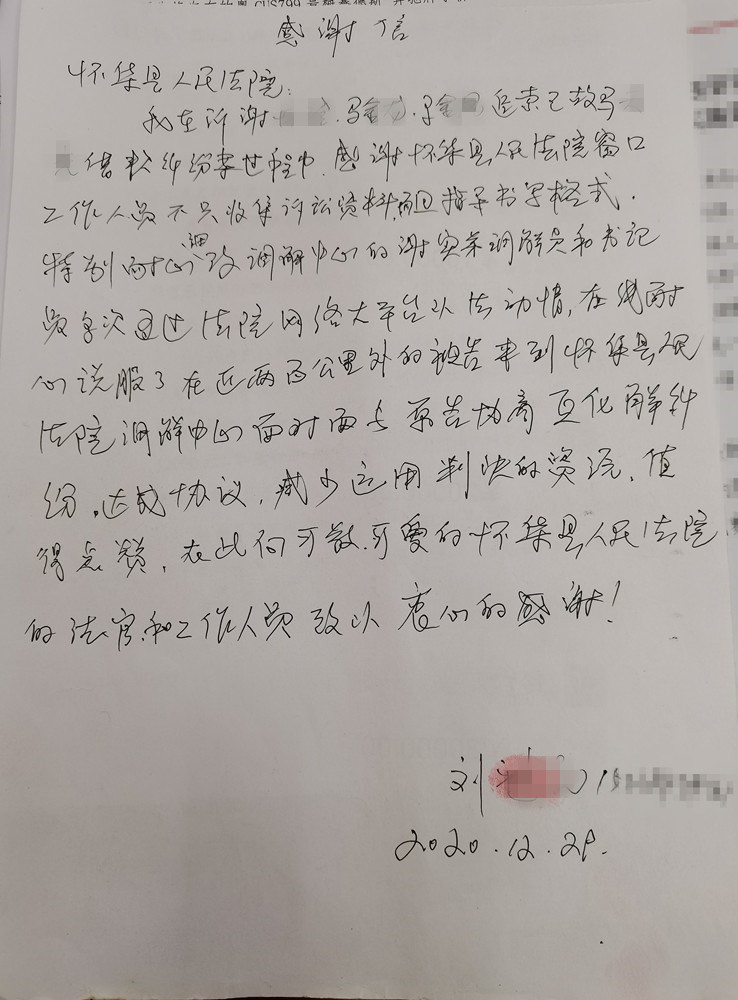 感谢信
怀集县人民法院:
我在诉谢 追索已故马
借款纠纷案过程中,感谢怀集县人民法院窗口
工作人员不只收集诉讼资料,而且指导书写格式.
特别耐心 调解中心的谢实荣调解员和书记
员多次通过法院网络大平台以法动情,在线耐
心说服了在近两百公里外的被告来到怀集县人民
法院调解中心面对面与原告协商互化解纠
纷.达成协议,减少运用判决的资源,值
得点赞,在此向可敬.可爱的怀集县人民法院
的法官和工作人员致以衷心的感谢!
刘
2020.12.28.